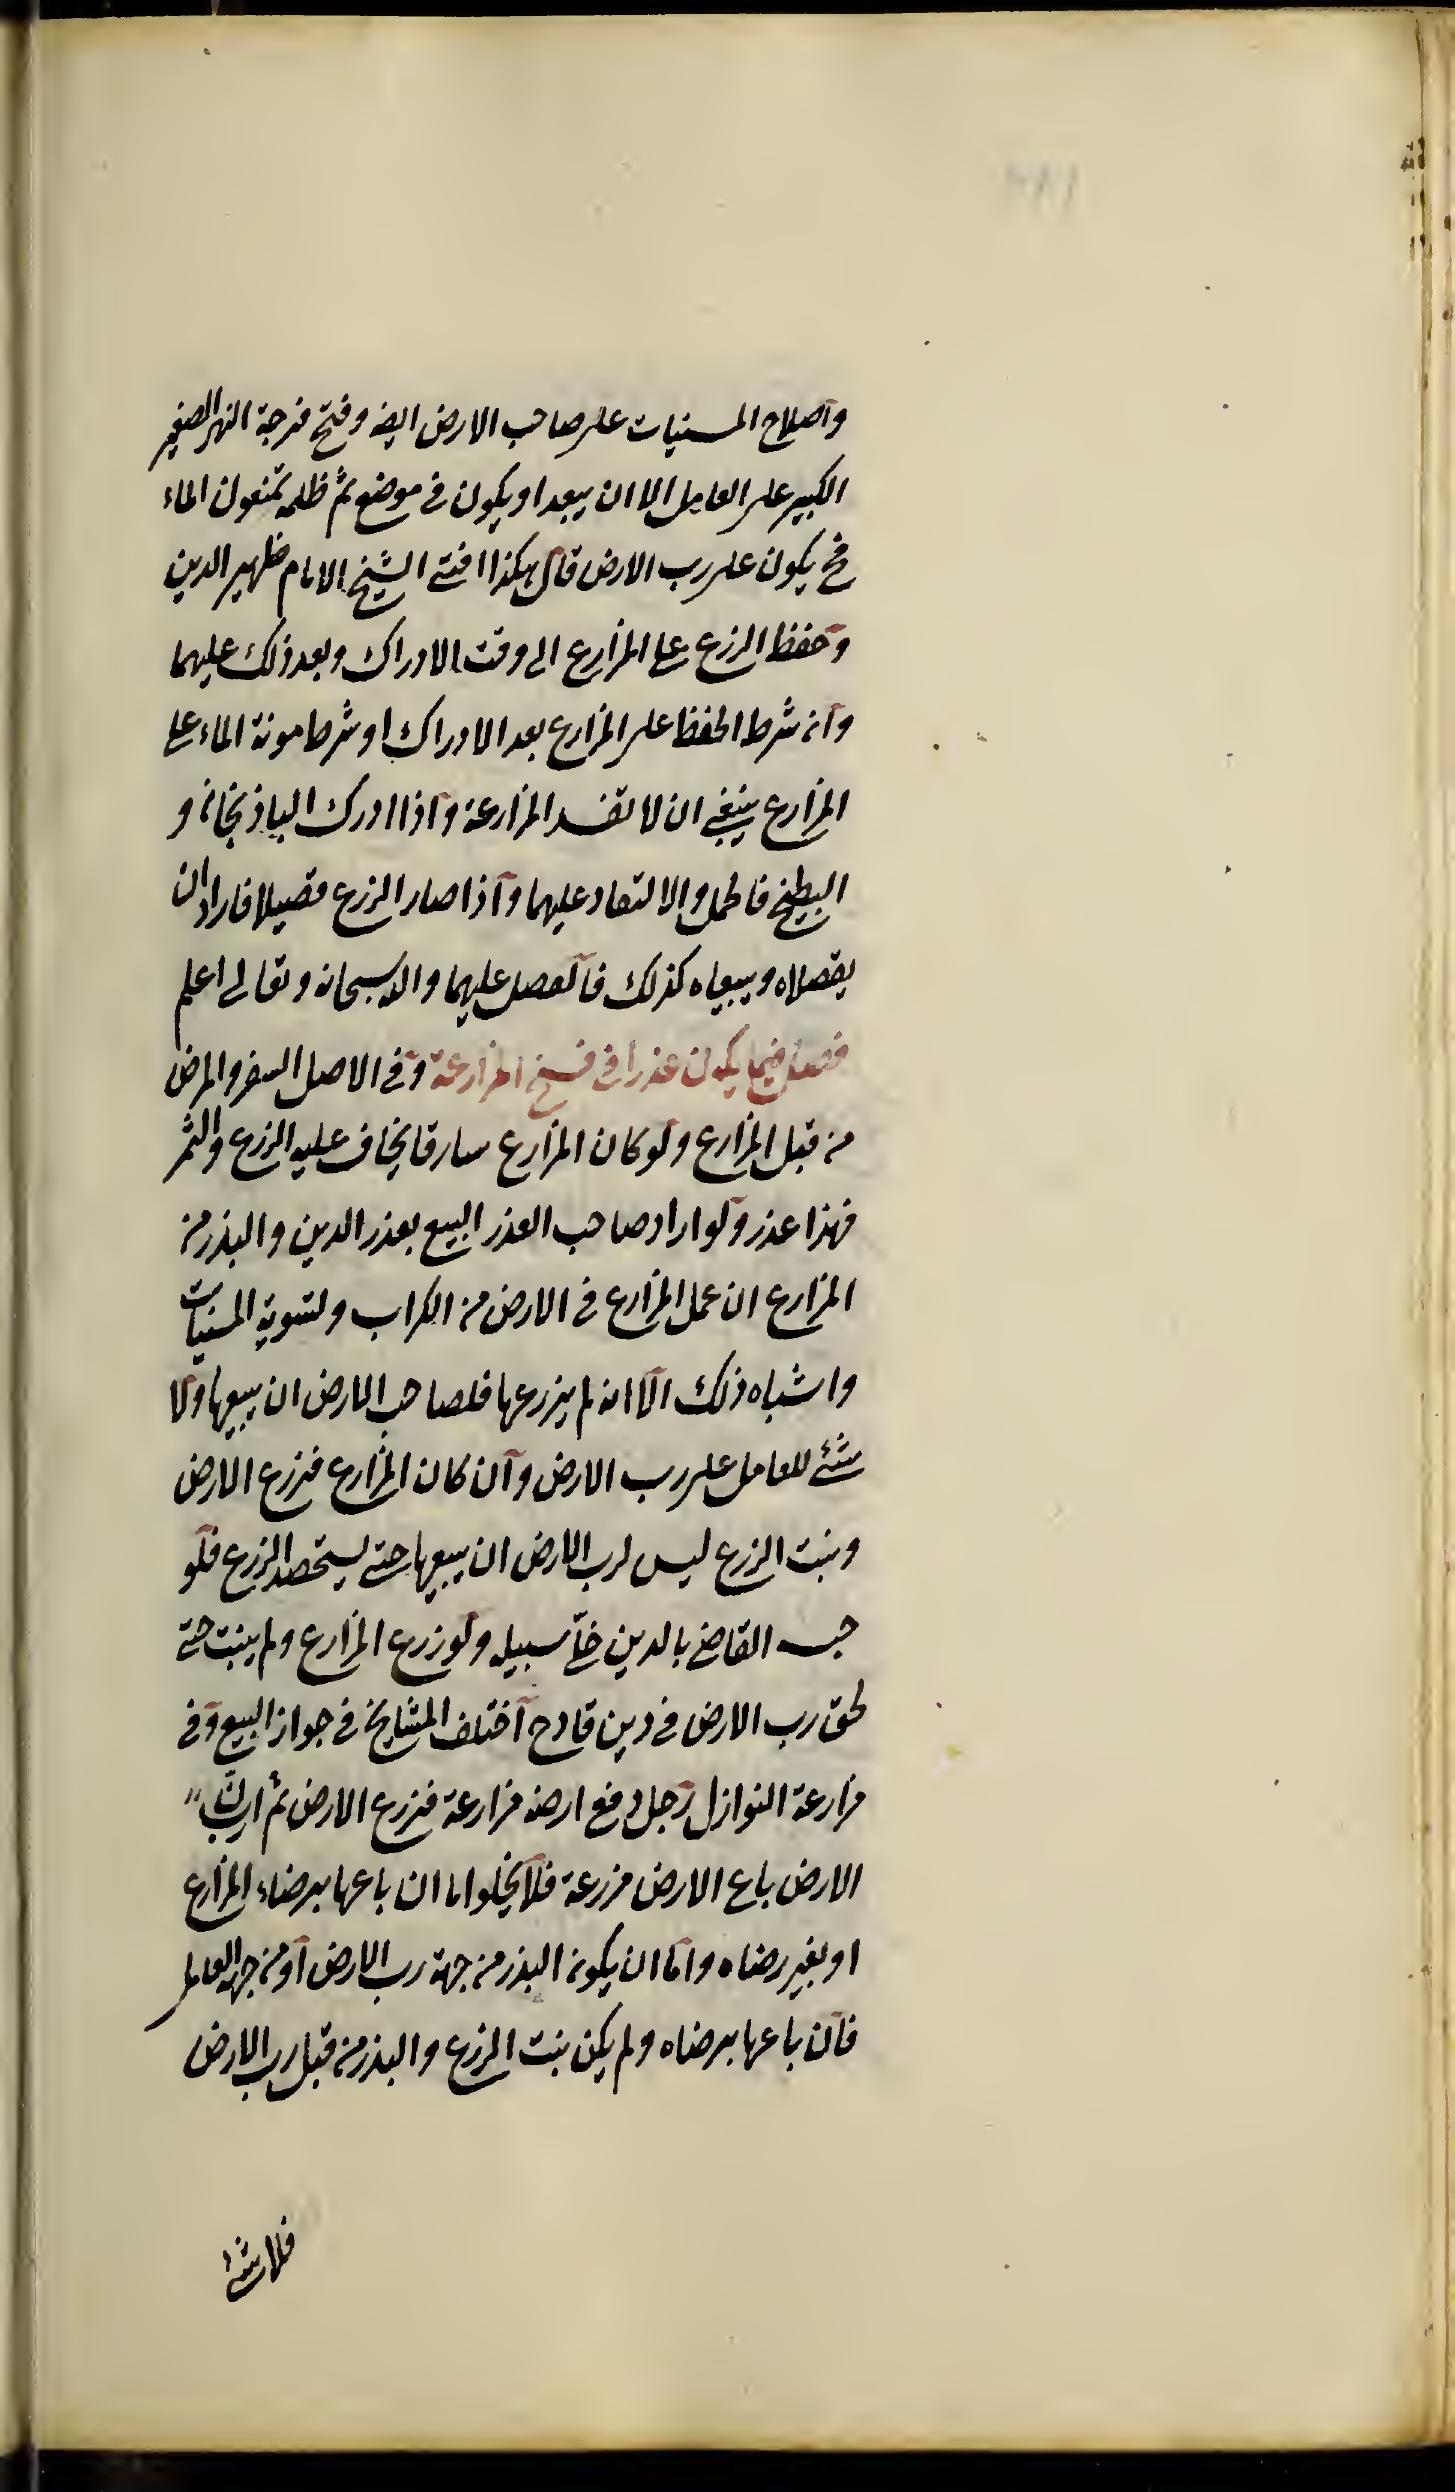 واصلاح المسنيات على صاحب الارض ايضه وفتح فرجة النهر الصغير
الكبير على العامل الا ان يبعد او يكون في موضع ثم ظلمه تمنعون الماء
فح يكون على رب الارض قال هكذا افتى الشيخ الامام ظهير الدين
وحفظ الزرع على المزارع الى وقت الادراك وبعد ذلك عليهما
وان شرط الحفظ على المزارع بعد الادراك او شرط مونة الماء على
المزارع ينبغي ان لا تفسد المزارعة واذا ادرك الباذنجان و
البطيخ فالحمل والالتقاد عليهما واذا صار الزرع قصيلا فاراد ان
يقصلاه ويبيعاه كذلك فالقصل عليهما والله سبحانه وتعالى اعلم
فصل فيما يكون عذرا في فسخ المزارعة وفي الاصل السفر والمرض
من قبل المزارع ولو كان المزارع سارقا يخاف عليه الزرع والثمر
فهذا عذر ولو اراد صاحب العذر البيع بعذر الدين والبذر من
المزارع ان عمل المزارع في الارض من الكراب وتسوية المسنيات
واشباه ذلك الا انه لم يزرعها فلصاحب الارض ان يبيعها ولا
شئ للعامل على رب الارض وان كان المزارع فزرع الارض
ونبت الزرع ليس لرب الارض ان يبيعها حتى يستحصد الزرع فلو
حبسه القاضي بالدين خلى سبيله ولو زرع المزارع ولم ينبت حتى
لحق رب الارض في دين قادح اختلف المشايخ في جواز البيع وفي
مزارعة النوازل رجل دفع ارضه مزارعة فزرع الارض ثم ان رب
الارض باع الارض مزرعة فلا يخلوا ما ان باعها برضاء المزارع
او بغير رضاه واما ان يكون البذر من جهة رب الارض او من جهة العامل
فان باعها برضاه ولم يكن نبت الزرع والبذر من قبل رب الارض
فلا شئ